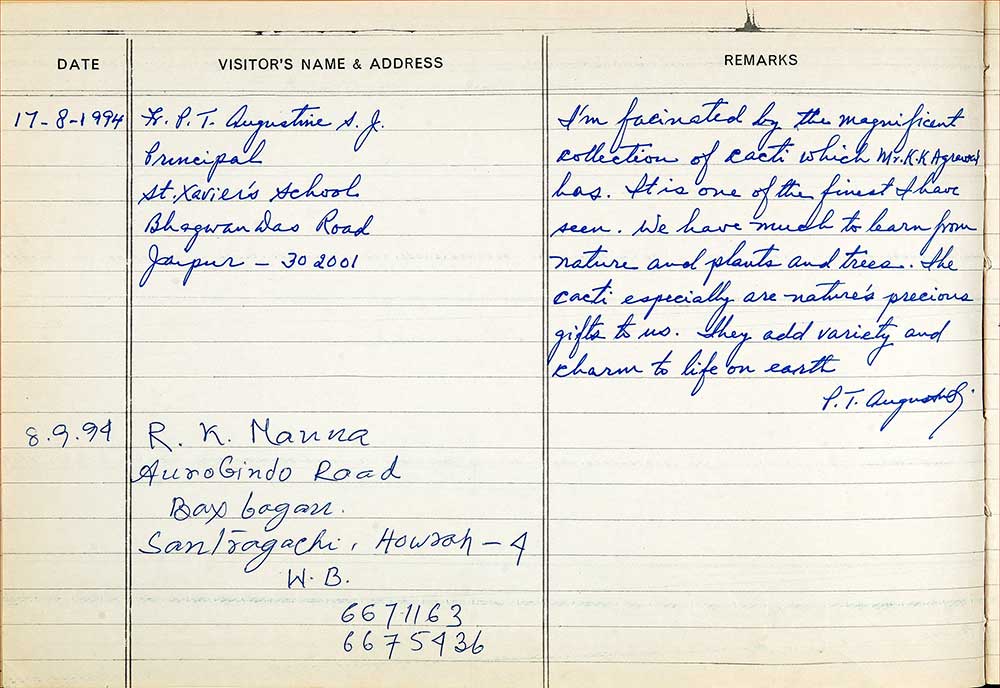 DATE
VISITOR'S NAME & ADDRESS
REMARKS
17-8-1994
Fr. P. T. Augustine S. J.
Principal
St. Xavier's School
Bhagwan Das Road
Jaipur - 302001
I'm facinated by the magnificent
collection of cacti which Mr. K.K Agrawal
has. It is one of the finest I have
seen. We have much to learn from
nature and plants and trees. The
cacti especially are nature's precious
gifts to us. They add variety and
charm to life on earth
P. T. Augustine Sj.
8.9.94
R. K. Manna
Aurobindo Road
Bax bagan.
Santragachi, Howrah - 4
W. B.
6671163
6675436